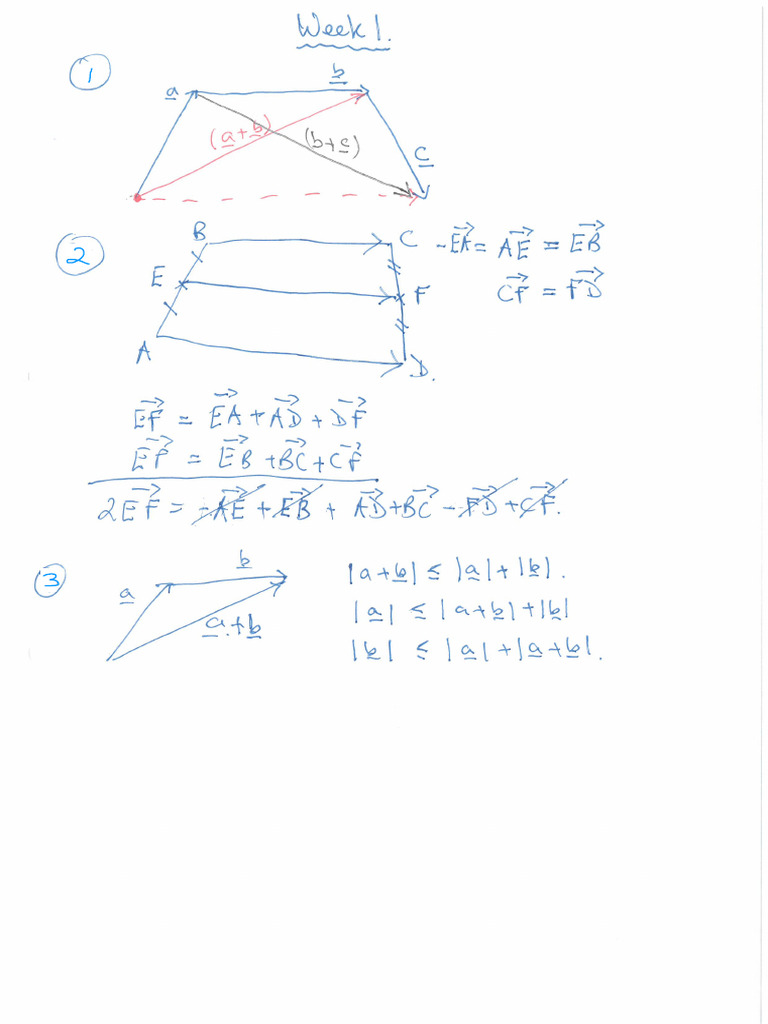 Week 1.
1
a b
(a+b) (b+c)
c
2
B C -EA = AE = EB
E F CF = FD
A D.
EF = EA + AD + DF
EF = EB + BC + CF
2EF = -AE + EB + AD + BC - FD + CF.
3
a b
a + b
|a+b| ≤ |a| + |b|.
|a| ≤ |a+b| + |b|
|b| ≤ |a| + |a+b|.